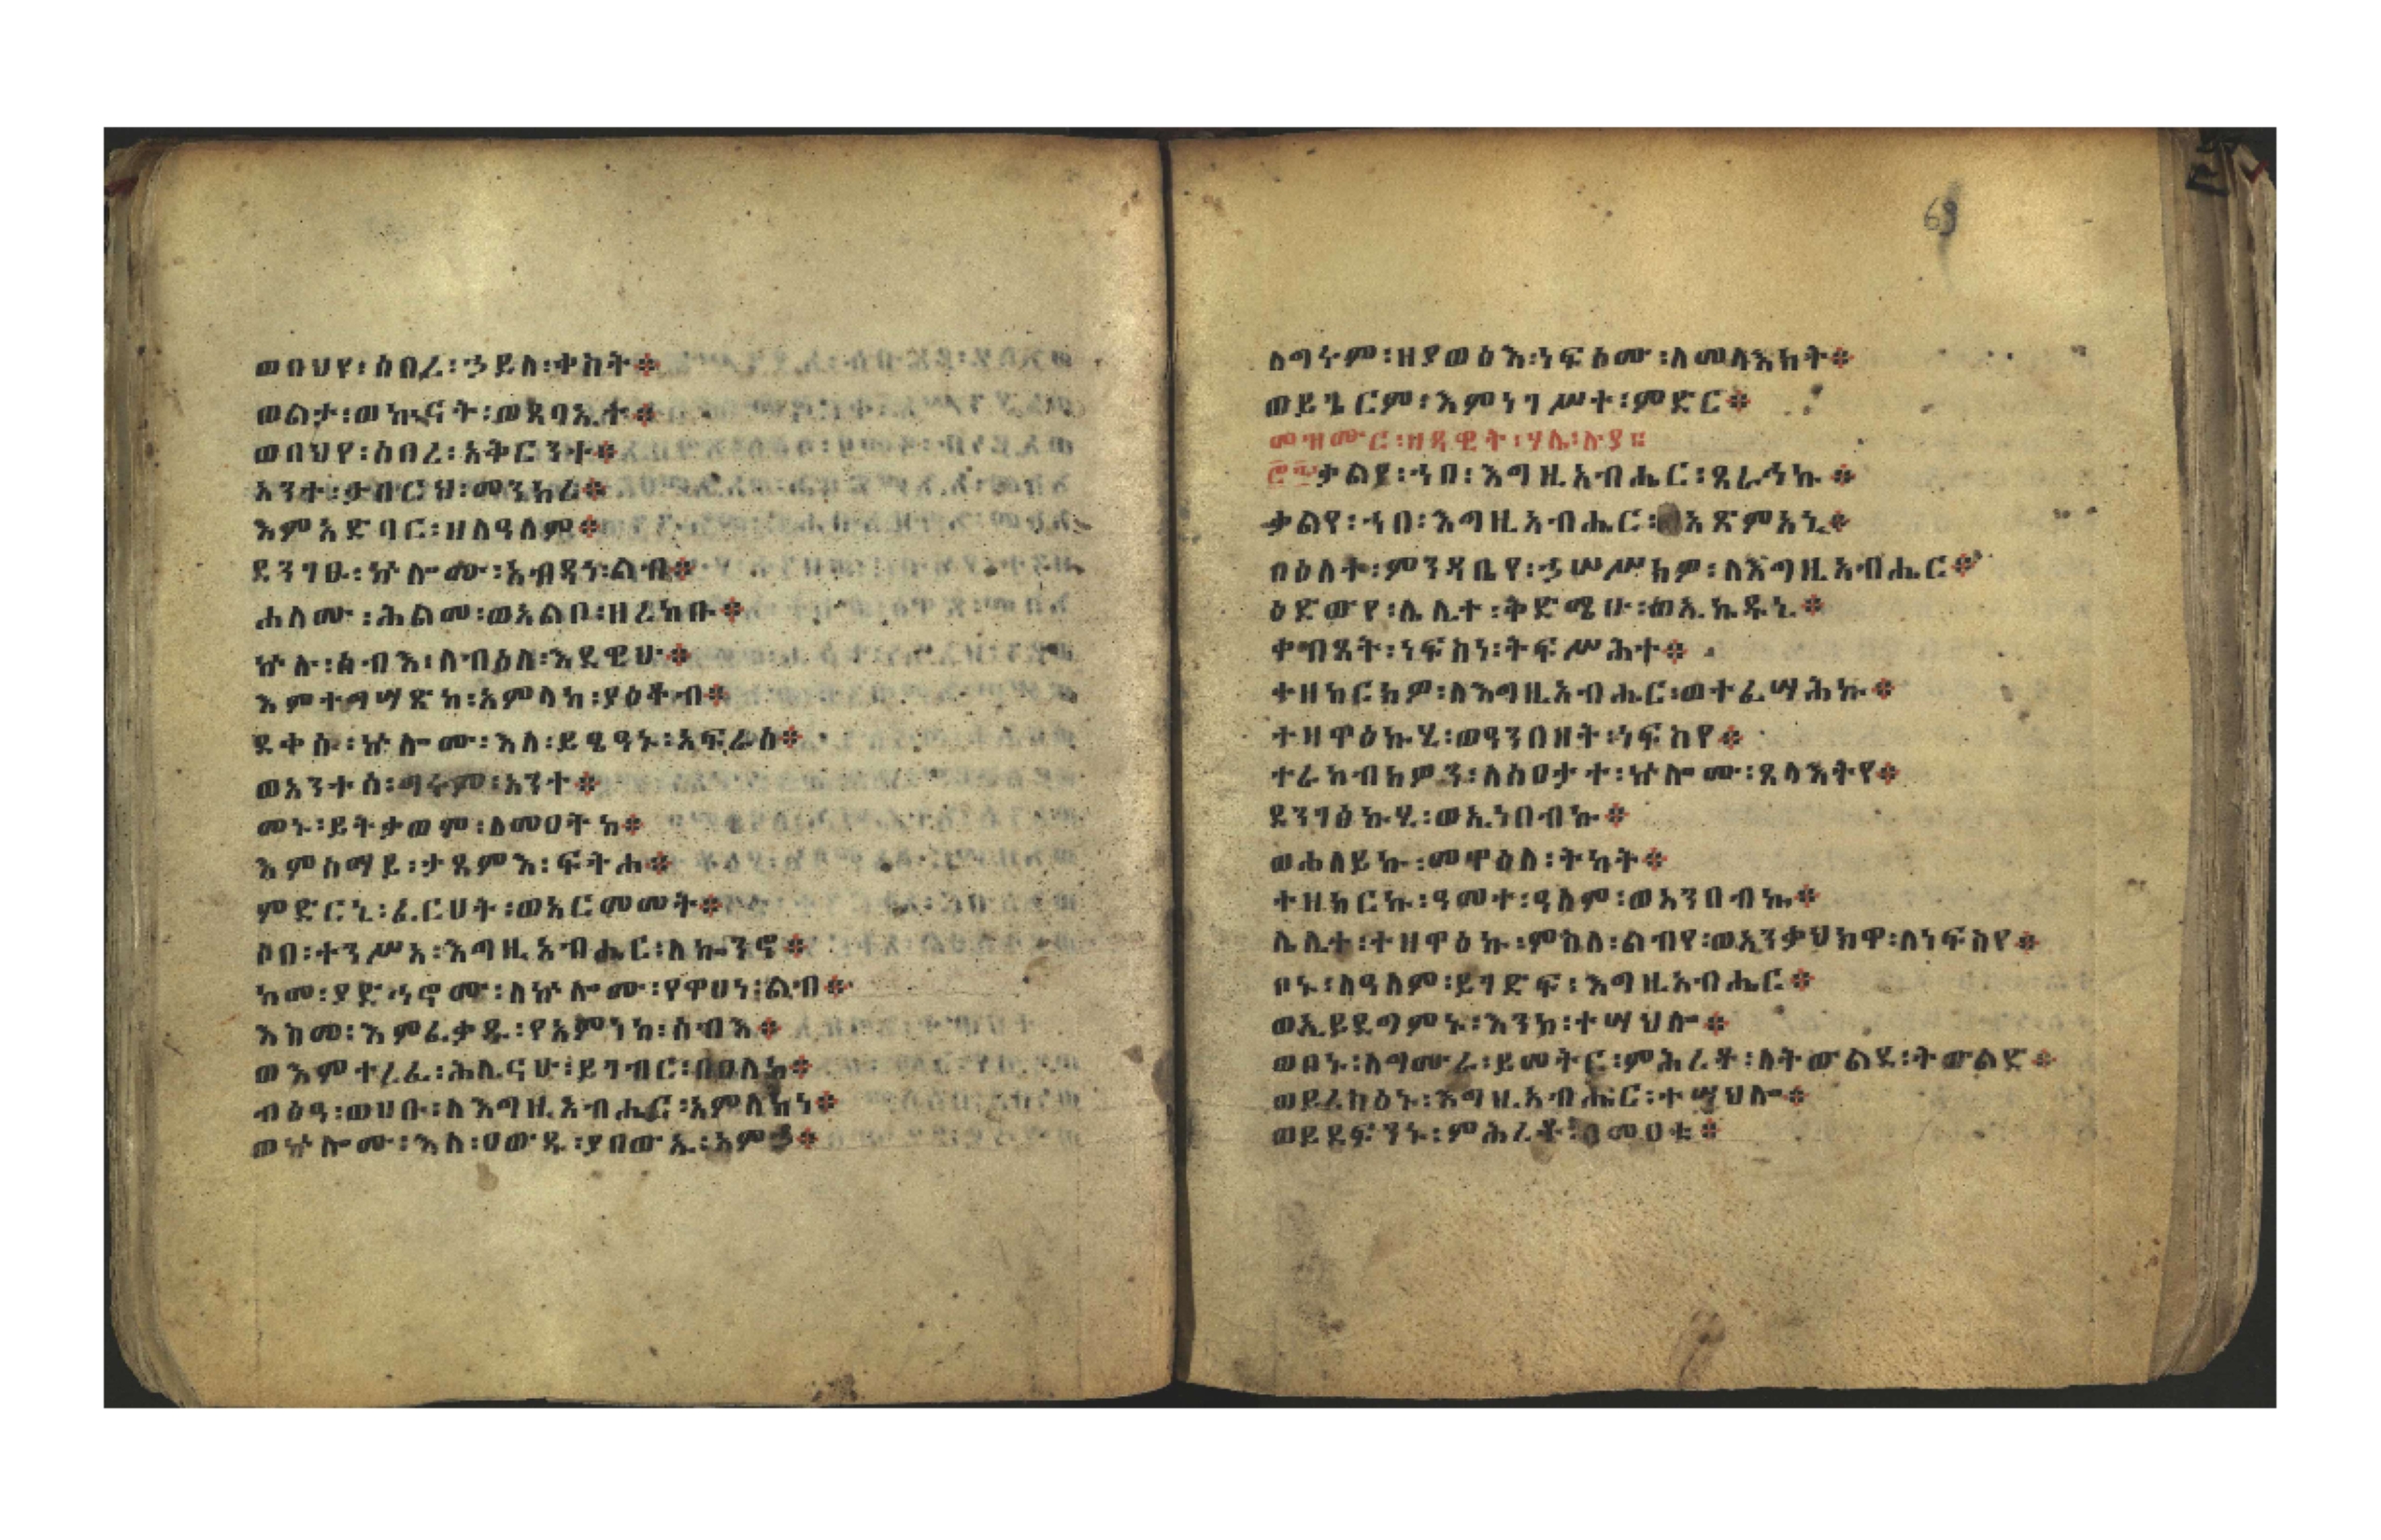 69
ወበህየ፡ሰበረ፡ኃይለ፡ቀስት።
ወልታ፡ወኵናት፡ወጸባኢተ።
ወበህየ፡ሰበረ፡አቅርንተ።
አንተ፡ታበርህ፡መንክረ።
እምአድባር፡ዘለዓለም።
ደንገፁ፡ኵሎሙ፡አብዳነ፡ልብ።
ሐለሙ፡ሕልመ፡ወአልቦ፡ዘረከቡ።
ኵሉ፡ሰብእ፡ለብዕለ፡እደዊሁ።
እምተግሣጽከ፡አምላከ፡ያዕቆብ።
ደቀሱ፡ኵሎሙ፡እለ፡ይፄዓኑ፡አፍራሰ።
ወአንተሰ፡ግሩም፡አንተ።
መኑ፡ይትቃወም፡ለመዐትከ።
እምሰማይ፡ታጸምን፡ፍትሐ።
ምድርኒ፡ፈርሀት፡ወአርመመት።
ሶበ፡ተንሥአ፡እግዚአብሔር፡ለኰንኖ።
ከመ፡ያድኅኖሙ፡ለኵሎሙ፡የዋሀነ፡ልብ።
እስመ፡እምፈቃዱ፡የአምነከ፡ሰብእ።
ወእምተረፈ፡ሕሊናሁ፡ይገብር፡በዐለከ።
ብፅዓ፡ወሀቡ፡ለእግዚአብሔር፡አምላክነ።
ወኵሎሙ፡እለ፡ዐውዱ፡ያበውኡ፡አምኃ።
ለግሩም፡ዘያወፅእ፡ነፍሶሙ፡ለመላእክት።
ወይጌርም፡እምነገሥተ፡ምድር።
መዝሙር፡ዘዳዊት፡ሃሌ፡ሉያ።
ቃልየ፡ኀበ፡እግዚአብሔር፡ጸራኅኩ።
ቃልየ፡ኀበ፡እግዚአብሔር፡አጽምአኒ።
በዕለተ፡ምንዳቤየ፡ኃሠሥክዎ፡ለእግዚአብሔር።
ዕድውየ፡ሌሊተ፡ቅድሜሁ፡ወኢኬዱኒ።
ቀብጸት፡ነፍስነ፡ትፍሥሕተ።
ተዘከርክዎ፡ለእግዚአብሔር፡ወተፈሣሕኩ።
ተዛዋዕኩሂ፡ወዓንበዘት፡ነፍስየ።
ተራከብክዎን፡ለሰዐታተ፡ኵሎሙ፡ጸላእትየ።
ደንገፅኩሂ፡ወኢነበብኩ።
ወሐለይኩ፡መዋዕለ፡ትካት።
ተዘከርኩ፡ዓመተ፡ዓለም፡ወአንበብኩ።
ሌሊተ፡ተዛዋዕኩ፡ምስለ፡ልብየ፡ወአንቃህክዋ፡ለነፍስየ።
ቦኑ፡ለዓለም፡ይገድፍ፡እግዚአብሔር።
ወኢይደግምኑ፡እንከ፡ተሣህሎ።
ወቦኑ፡ለግሙራ፡ይመትር፡ምሕረቶ፡ለትውልደ፡ትውልድ።
ወይረስዕኑ፡እግዚአብሔር፡ተሣህሎ።
ወይደፍንኑ፡ምሕረቶ፡በመዐቱ።